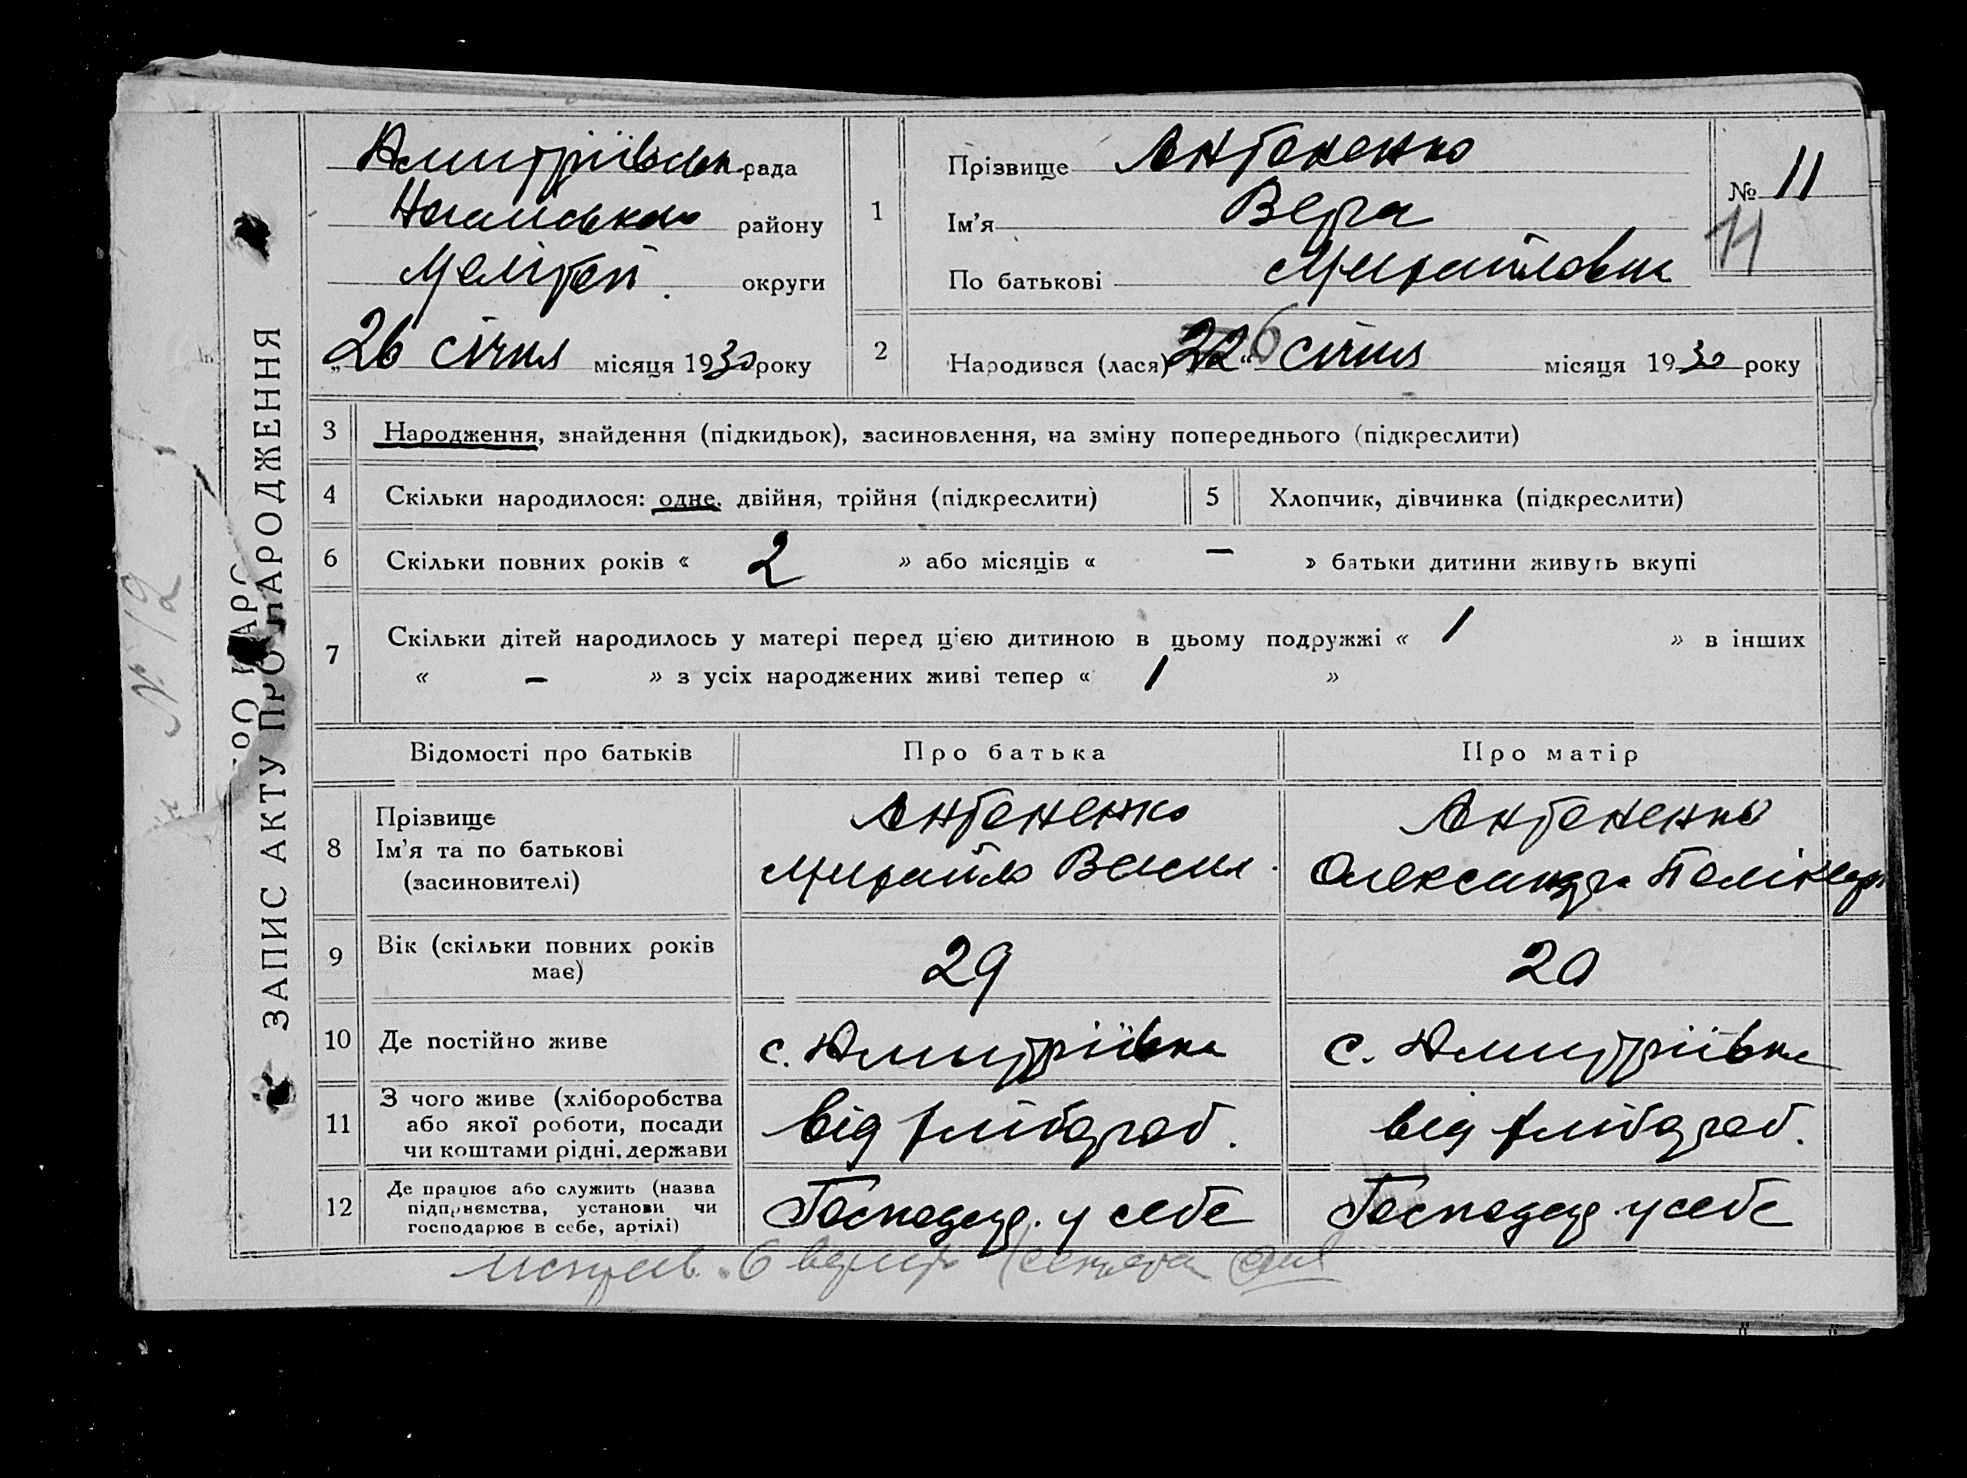 ЗАПИС АКТУ ПРО НАРОДЖЕННЯ
№ 12
Дмитріївськ. рада
Ногайського району
Меліտоп. округи
„26 січня місяця 1930 року
1
Прізвище Антоненко
Ім’я Вера
По батькові Михайловна
№ 11
11
2
Народився (лася) „22“ 6 січня місяця 1930 року
3 Народження, знайдення (підкидьок), засиновлення, на зміну попереднього (підкреслити)
4 Скільки народилося: одне, двійня, трійня (підкреслити) 5 Хлопчик, дівчинка (підкреслити)
6 Скільки повних років « 2 » або місяців « – » батьки дитини живуть вкупі
7 Скільки дітей народилось у матері перед цією дитиною в цьому подружжі « 1 » в інших
« – » з усіх народжених живі тепер « 1 »
Відомості про батьків Про батька Про матір
8
Прізвище Антоненко Антоненко
Ім’я та по батькові Михайло Васил. Олександра Полікар
(засиновителі)
9 Вік (скільки повних років має) 29 20
10 Де постійно живе с. Дмитріївка с. Дмитріївка
11 З чого живе (хліборобства
або якої роботи, посади
чи коштами рідні, держави від хлібороб. від хлібороб.
12 Де працює або служить (назва
підприємства, установи чи
господарює в себе, артілі) Господар. у себе Господар у себе
исправ. 6